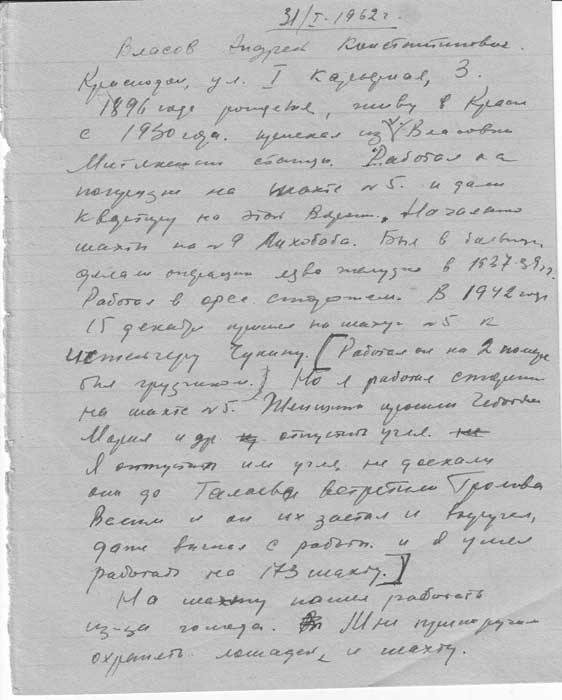 31/I-1962 г.
Власов Андрей Константинович.
Краснодон, ул. I Карьерная, 3.
1896 года рождения, живу в Красн
с 1930 года. приехал из Власовки
Митякинской станицы. Работал на
погрузке на шахте №5. и дали
квартиру на этом. Начальник
шахты на №9 Лихобаба. Был в больнице
делали операцию язва желудка в 1937-39 гг.
Работал в орсе сторожем. В 1942 году
15 декабря пришел на шахту №5 к
Чукину. [Работал он на 2 
был грузчиком.] Но я работал сторожем
на шахте №5. Женщины просили
Мария и др отпустить угля.
Я отпустил им угля, не доехали
они до встретили Громова
Васил и он их застал и вернул,
даже выгнал с работы и я ушел
работать на 173 шахту.]
На шахту пошел работать
из-за голода. Мне приходилось
охранять лошадей, и шахту.